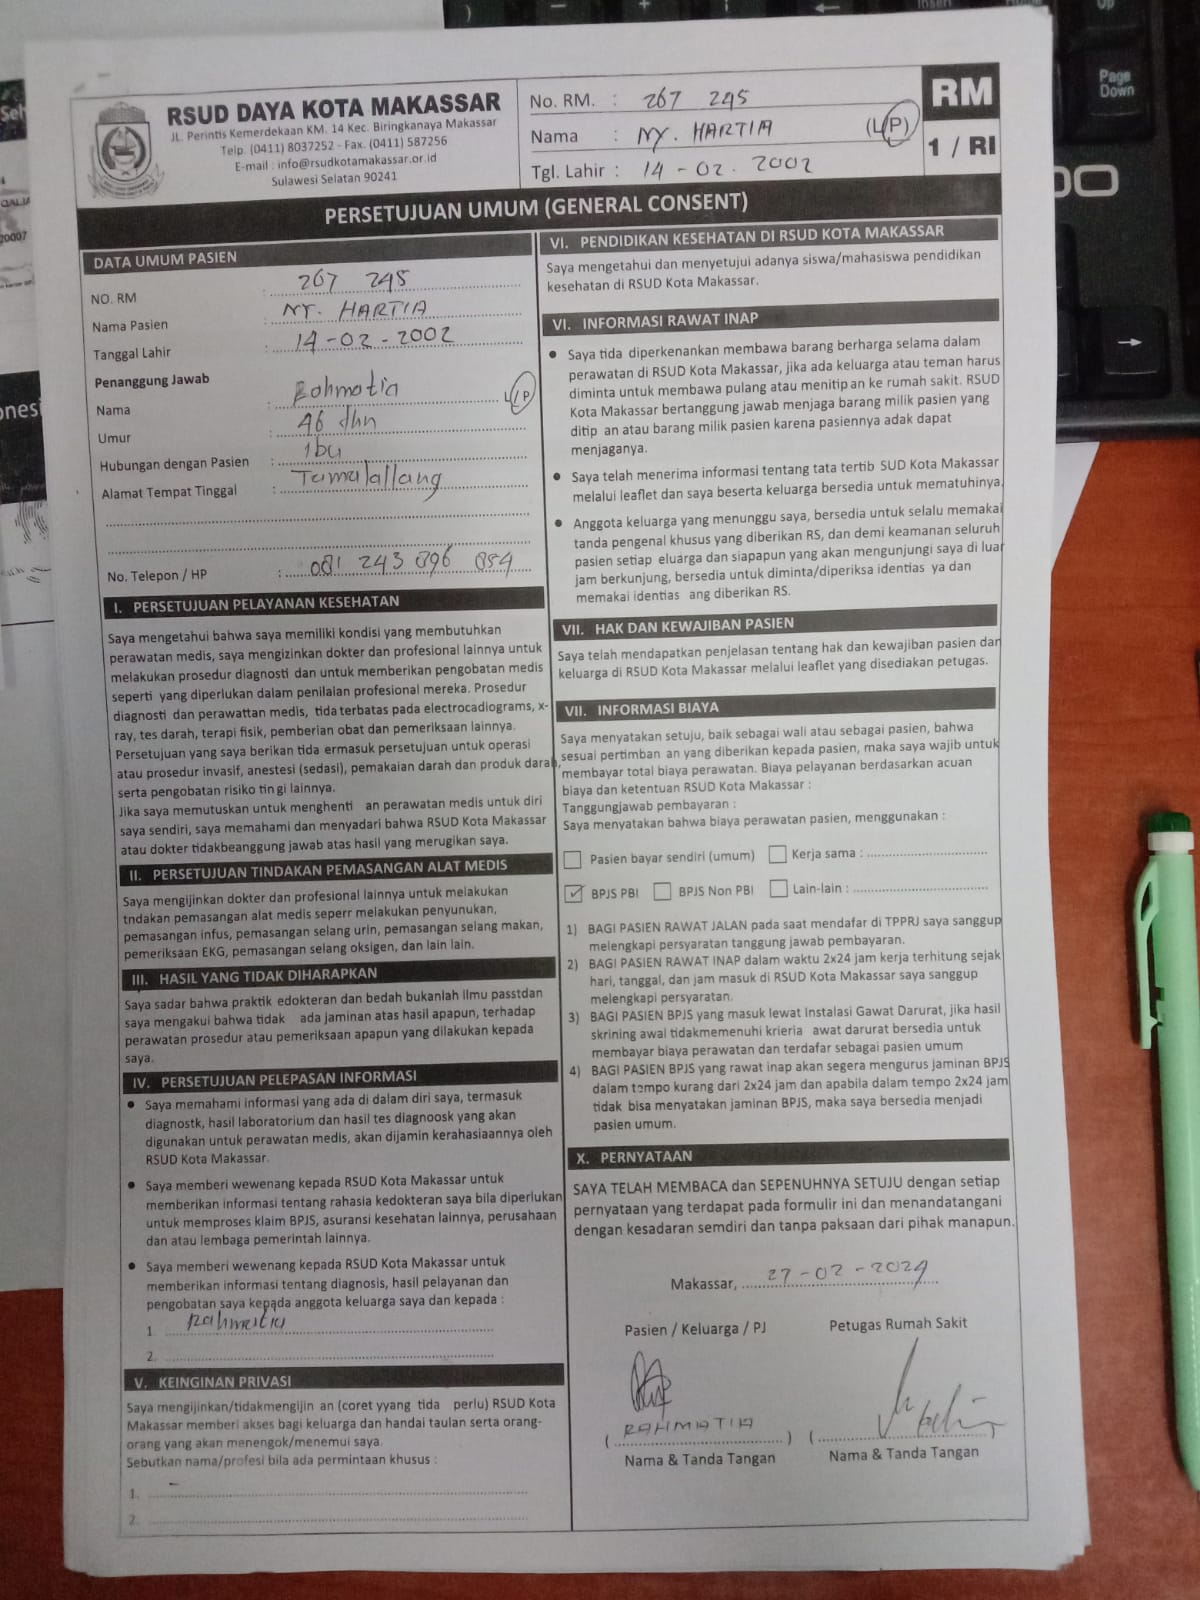 RSUD DAYA KOTA MAKASSAR
JL. Perintis Kemerdekaan KM. 14 Kec. Biringkanaya Makassar
Telp. (0411) 8037252 - Fax. (0411) 587256
E-mail : info@rsudkotamakassar.or.id
Sulawesi Selatan 90241
No. RM. : 267 245
Nama : NY. HARTIA (L/P)
Tgl. Lahir : 14 - 02 . 2002
RM
1 / RI
PERSETUJUAN UMUM (GENERAL CONSENT)
DATA UMUM PASIEN
NO. RM : 267 245
Nama Pasien : NY. HARTIA
Tanggal Lahir : 14 - 02 - 2002
Penanggung Jawab
Nama : Rahmatia L/P
Umur : 46 thn
Hubungan dengan Pasien : Ibu
Alamat Tempat Tinggal : Tamalallang
No. Telepon / HP : 081 243 896 854
I. PERSETUJUAN PELAYANAN KESEHATAN
Saya mengetahui bahwa saya memiliki kondisi yang membutuhkan
perawatan medis, saya mengizinkan dokter dan profesional lainnya untuk
melakukan prosedur diagnosti dan untuk memberikan pengobatan medis
seperti yang diperlukan dalam penilaian profesional mereka. Prosedur
diagnosti dan perawattan medis, tida terbatas pada electrocadiograms, x-
ray, tes darah, terapi fisik, pemberian obat dan pemeriksaan lainnya.
Persetujuan yang saya berikan tida ermasuk persetujuan untuk operasi
atau prosedur invasif, anestesi (sedasi), pemakaian darah dan produk darah,
serta pengobatan risiko tin gi lainnya.
Jika saya memutuskan untuk menghenti an perawatan medis untuk diri
saya sendiri, saya memahami dan menyadari bahwa RSUD Kota Makassar
atau dokter tidakbeanggung jawab atas hasil yang merugikan saya.
II. PERSETUJUAN TINDAKAN PEMASANGAN ALAT MEDIS
Saya mengijinkan dokter dan profesional lainnya untuk melakukan
tndakan pemasangan alat medis seperr melakukan penyunukan,
pemasangan infus, pemasangan selang urin, pemasangan selang makan,
pemeriksaan EKG, pemasangan selang oksigen, dan lain lain.
III. HASIL YANG TIDAK DIHARAPKAN
Saya sadar bahwa praktik edokteran dan bedah bukanlah ilmu passtdan
saya mengakui bahwa tidak ada jaminan atas hasil apapun, terhadap
perawatan prosedur atau pemeriksaan apapun yang dilakukan kepada
saya.
IV. PERSETUJUAN PELEPASAN INFORMASI
• Saya memahami informasi yang ada di dalam diri saya, termasuk
diagnostk, hasil laboratorium dan hasil tes diagnoosk yang akan
digunakan untuk perawatan medis, akan dijamin kerahasiaannya oleh
RSUD Kota Makassar.
• Saya memberi wewenang kepada RSUD Kota Makassar untuk
memberikan informasi tentang rahasia kedokteran saya bila diperlukan
untuk memproses klaim BPJS, asuransi kesehatan lainnya, perusahaan
dan atau lembaga pemerintah lainnya.
• Saya memberi wewenang kepada RSUD Kota Makassar untuk
memberikan informasi tentang diagnosis, hasil pelayanan dan
pengobatan saya kepada anggota keluarga saya dan kepada :
1. Rahmatia
2.
V. KEINGINAN PRIVASI
Saya mengijinkan/tidakmengijin an (coret yyang tida perlu) RSUD Kota
Makassar memberi akses bagi keluarga dan handai taulan serta orang-
orang yang akan menengok/menemui saya.
Sebutkan nama/profesi bila ada permintaan khusus :
1. -
2.
VI. PENDIDIKAN KESEHATAN DI RSUD KOTA MAKASSAR
Saya mengetahui dan menyetujui adanya siswa/mahasiswa pendidikan
kesehatan di RSUD Kota Makassar.
VI. INFORMASI RAWAT INAP
• Saya tida diperkenankan membawa barang berharga selama dalam
perawatan di RSUD Kota Makassar, jika ada keluarga atau teman harus
diminta untuk membawa pulang atau menitip an ke rumah sakit. RSUD
Kota Makassar bertanggung jawab menjaga barang milik pasien yang
ditip an atau barang milik pasien karena pasiennya adak dapat
menjaganya.
• Saya telah menerima informasi tentang tata tertib SUD Kota Makassar
melalui leaflet dan saya beserta keluarga bersedia untuk mematuhinya.
• Anggota keluarga yang menunggu saya, bersedia untuk selalu memakai
tanda pengenal khusus yang diberikan RS, dan demi keamanan seluruh
pasien setiap eluarga dan siapapun yang akan mengunjungi saya di luar
jam berkunjung, bersedia untuk diminta/diperiksa identias ya dan
memakai identias ang diberikan RS.
VII. HAK DAN KEWAJIBAN PASIEN
Saya telah mendapatkan penjelasan tentang hak dan kewajiban pasien dan
keluarga di RSUD Kota Makassar melalui leaflet yang disediakan petugas.
VII. INFORMASI BIAYA
Saya menyatakan setuju, baik sebagai wali atau sebagai pasien, bahwa
sesuai pertimban an yang diberikan kepada pasien, maka saya wajib untuk
membayar total biaya perawatan. Biaya pelayanan berdasarkan acuan
biaya dan ketentuan RSUD Kota Makassar :
Tanggungjawab pembayaran :
Saya menyatakan bahwa biaya perawatan pasien, menggunakan :
☐ Pasien bayar sendiri (umum) ☐ Kerja sama :
☑ BPJS PBI ☐ BPJS Non PBI ☐ Lain-lain :
1) BAGI PASIEN RAWAT JALAN pada saat mendafar di TPPRJ saya sanggup
melengkapi persyaratan tanggung jawab pembayaran.
2) BAGI PASIEN RAWAT INAP dalam waktu 2x24 jam kerja terhitung sejak
hari, tanggal, dan jam masuk di RSUD Kota Makassar saya sanggup
melengkapi persyaratan.
3) BAGI PASIEN BPJS yang masuk lewat Instalasi Gawat Darurat, jika hasil
skrining awal tidakmemenuhi krieria awat darurat bersedia untuk
membayar biaya perawatan dan terdafar sebagai pasien umum
4) BAGI PASIEN BPJS yang rawat inap akan segera mengurus jaminan BPJS
dalam tempo kurang dari 2x24 jam dan apabila dalam tempo 2x24 jam
tidak bisa menyatakan jaminan BPJS, maka saya bersedia menjadi
pasien umum.
X. PERNYATAAN
SAYA TELAH MEMBACA dan SEPENUHNYA SETUJU dengan setiap
pernyataan yang terdapat pada formulir ini dan menandatangani
dengan kesadaran semdiri dan tanpa paksaan dari pihak manapun.
Makassar, 27 - 02 - 2024
Pasien / Keluarga / PJ Petugas Rumah Sakit
( RAHMATIA ) ( )
Nama & Tanda Tangan Nama & Tanda Tangan
Page
Down